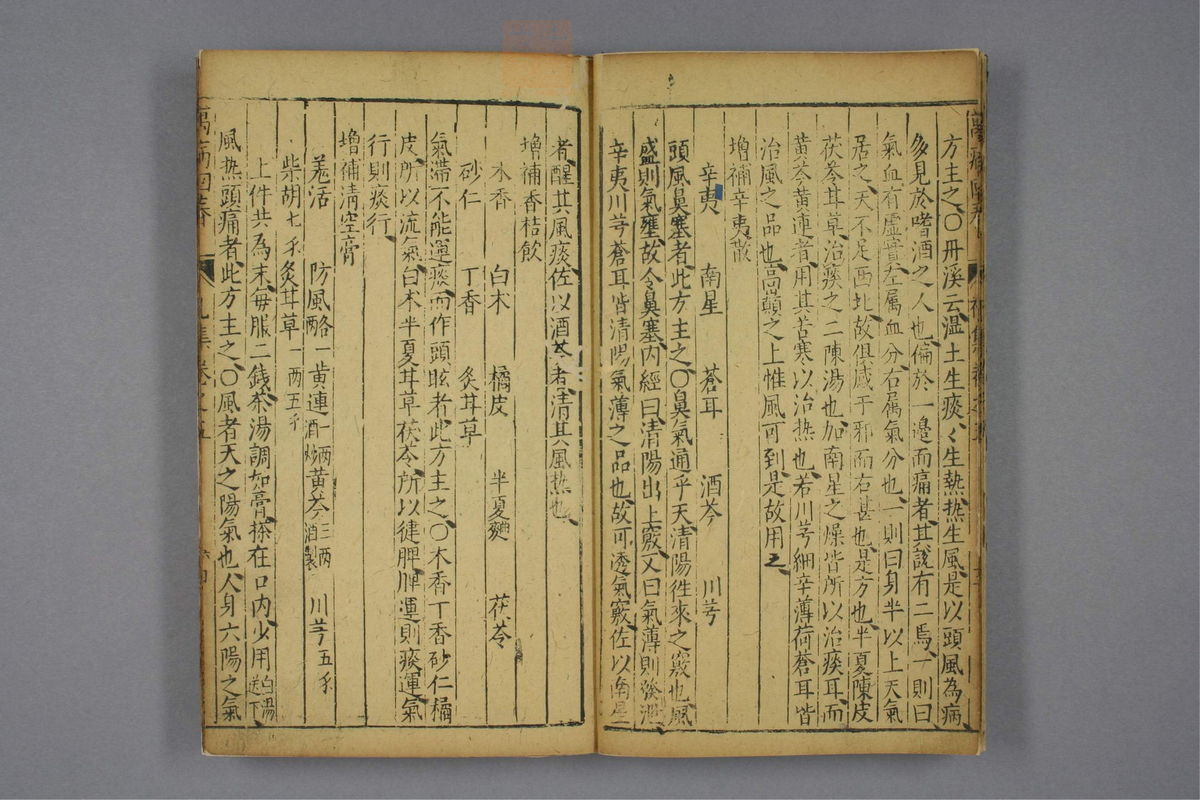 方主之○丹溪云温土生痰〻生熱熱生風是以頭風為病
多見於嗜酒之人也偏於一邊而痛者其說有二焉一則曰
氣血有虛實左属血分右属氣分也一則曰身半以上天氣
居之天不足西北故俱感于邪而右甚也是方也半夏陳皮
茯苓耳草治痰之二陳湯也加南星之燥皆所以治痰耳而
黄芩黄連者用其苦寒以治热也若川芎細辛薄荷蒼耳皆
治風之品也高巔之上惟風可到是故用之
增補辛夷散
辛夷 南星 蒼耳 酒芩 川芎
頭風鼻塞者此方主之○鼻氣通乎天清陽徃來之竅也風
盛則氣壅故令鼻塞内經曰清陽出上竅又曰氣薄則發泄
辛夷川芎蒼耳皆清陽氣薄之品也故可透氣竅佐以南星
者醒其風痰佐以酒芩者清其風热也
增補香桔飲
木香 白木 橘皮 半夏麯 茯苓
砂仁 丁香 炙耳草
氣滯不能運痰而作頭眩者此方主之○木香丁香砂仁橘
皮所以流氣白术半夏耳草茯苓所以健脾脾運則痰運氣
行則痰行
增補清空膏
羗活 防風各一兩 黄連一兩酒炒 黄芩三两酒製 川芎五
柴胡七 炙耳草一两五
上件共為末每服二錢茶湯調如膏搽在口内少用白湯送下
風热頭痛者此方主之○風者天之陽氣也人身六陽之氣